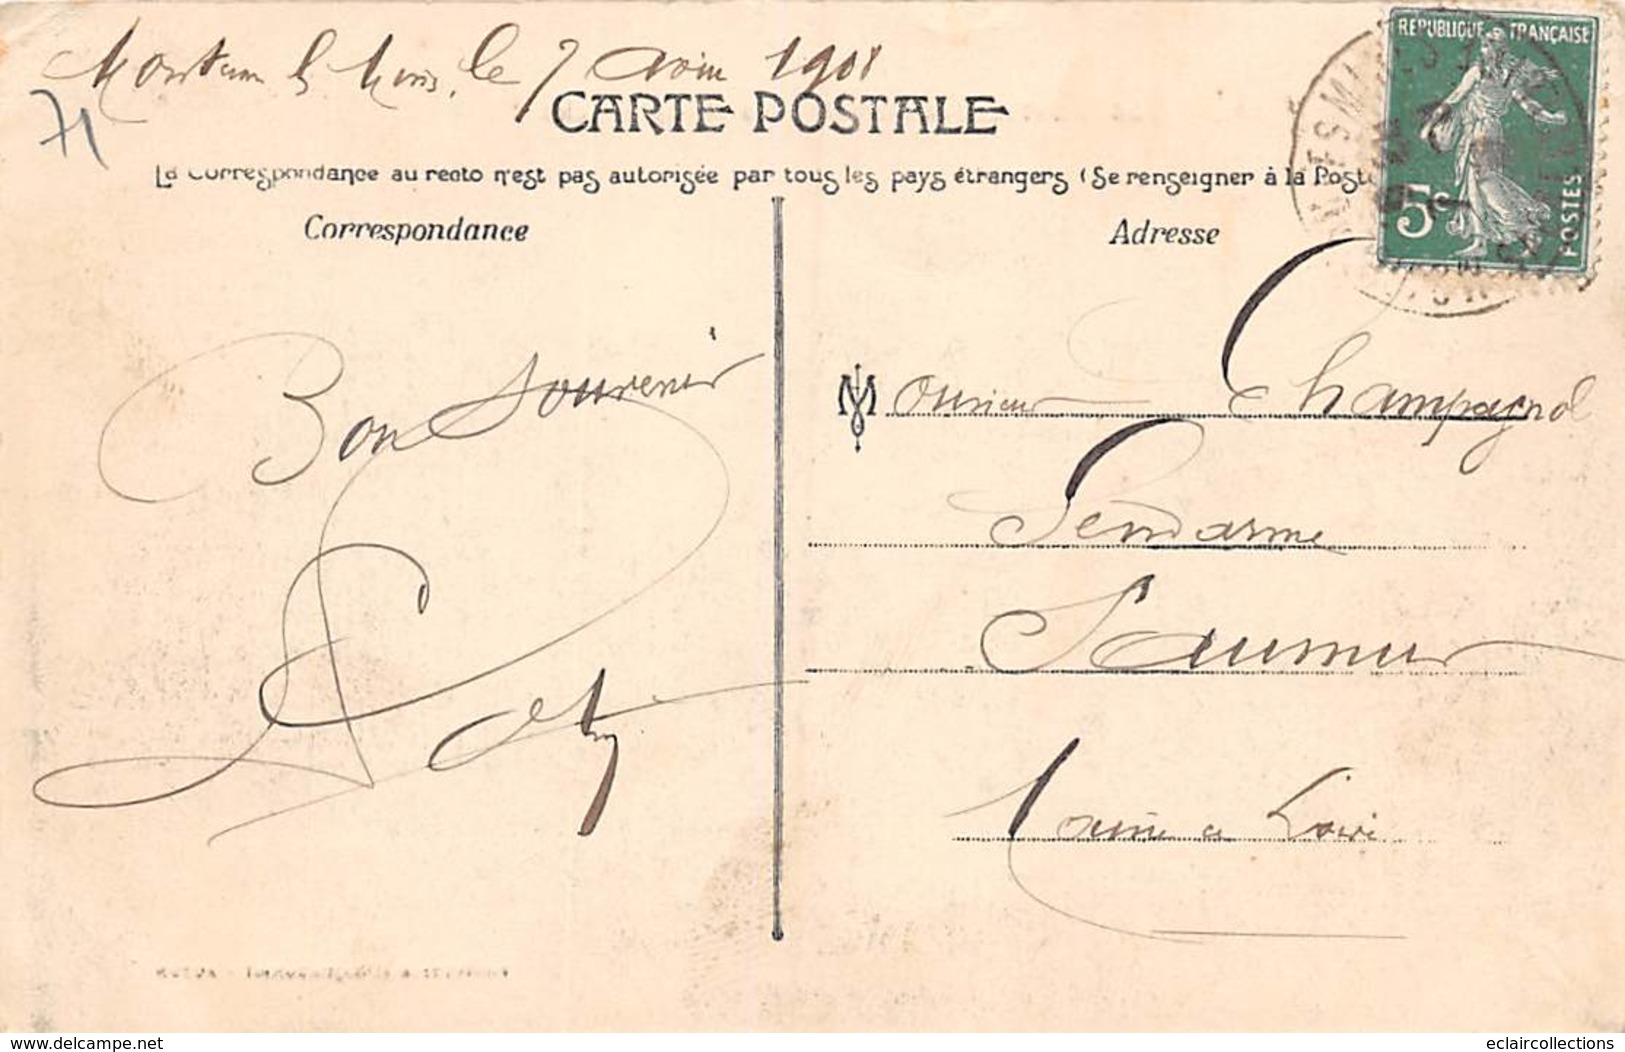 Montceau les Mines, le 7 Aout 1908
71
CARTE POSTALE
La Correspondance au recto n'est pas autorisée par tous les pays étrangers (Se renseigner à la Poste
Correspondance
Adresse
REPUBLIQUE FRANÇAISE
5c
POSTES
Bon Souvenir
Monsieur Champagnol
Gendarme
Saumur
Maine et Loire
https://www.delcampe.net
eclaircollections